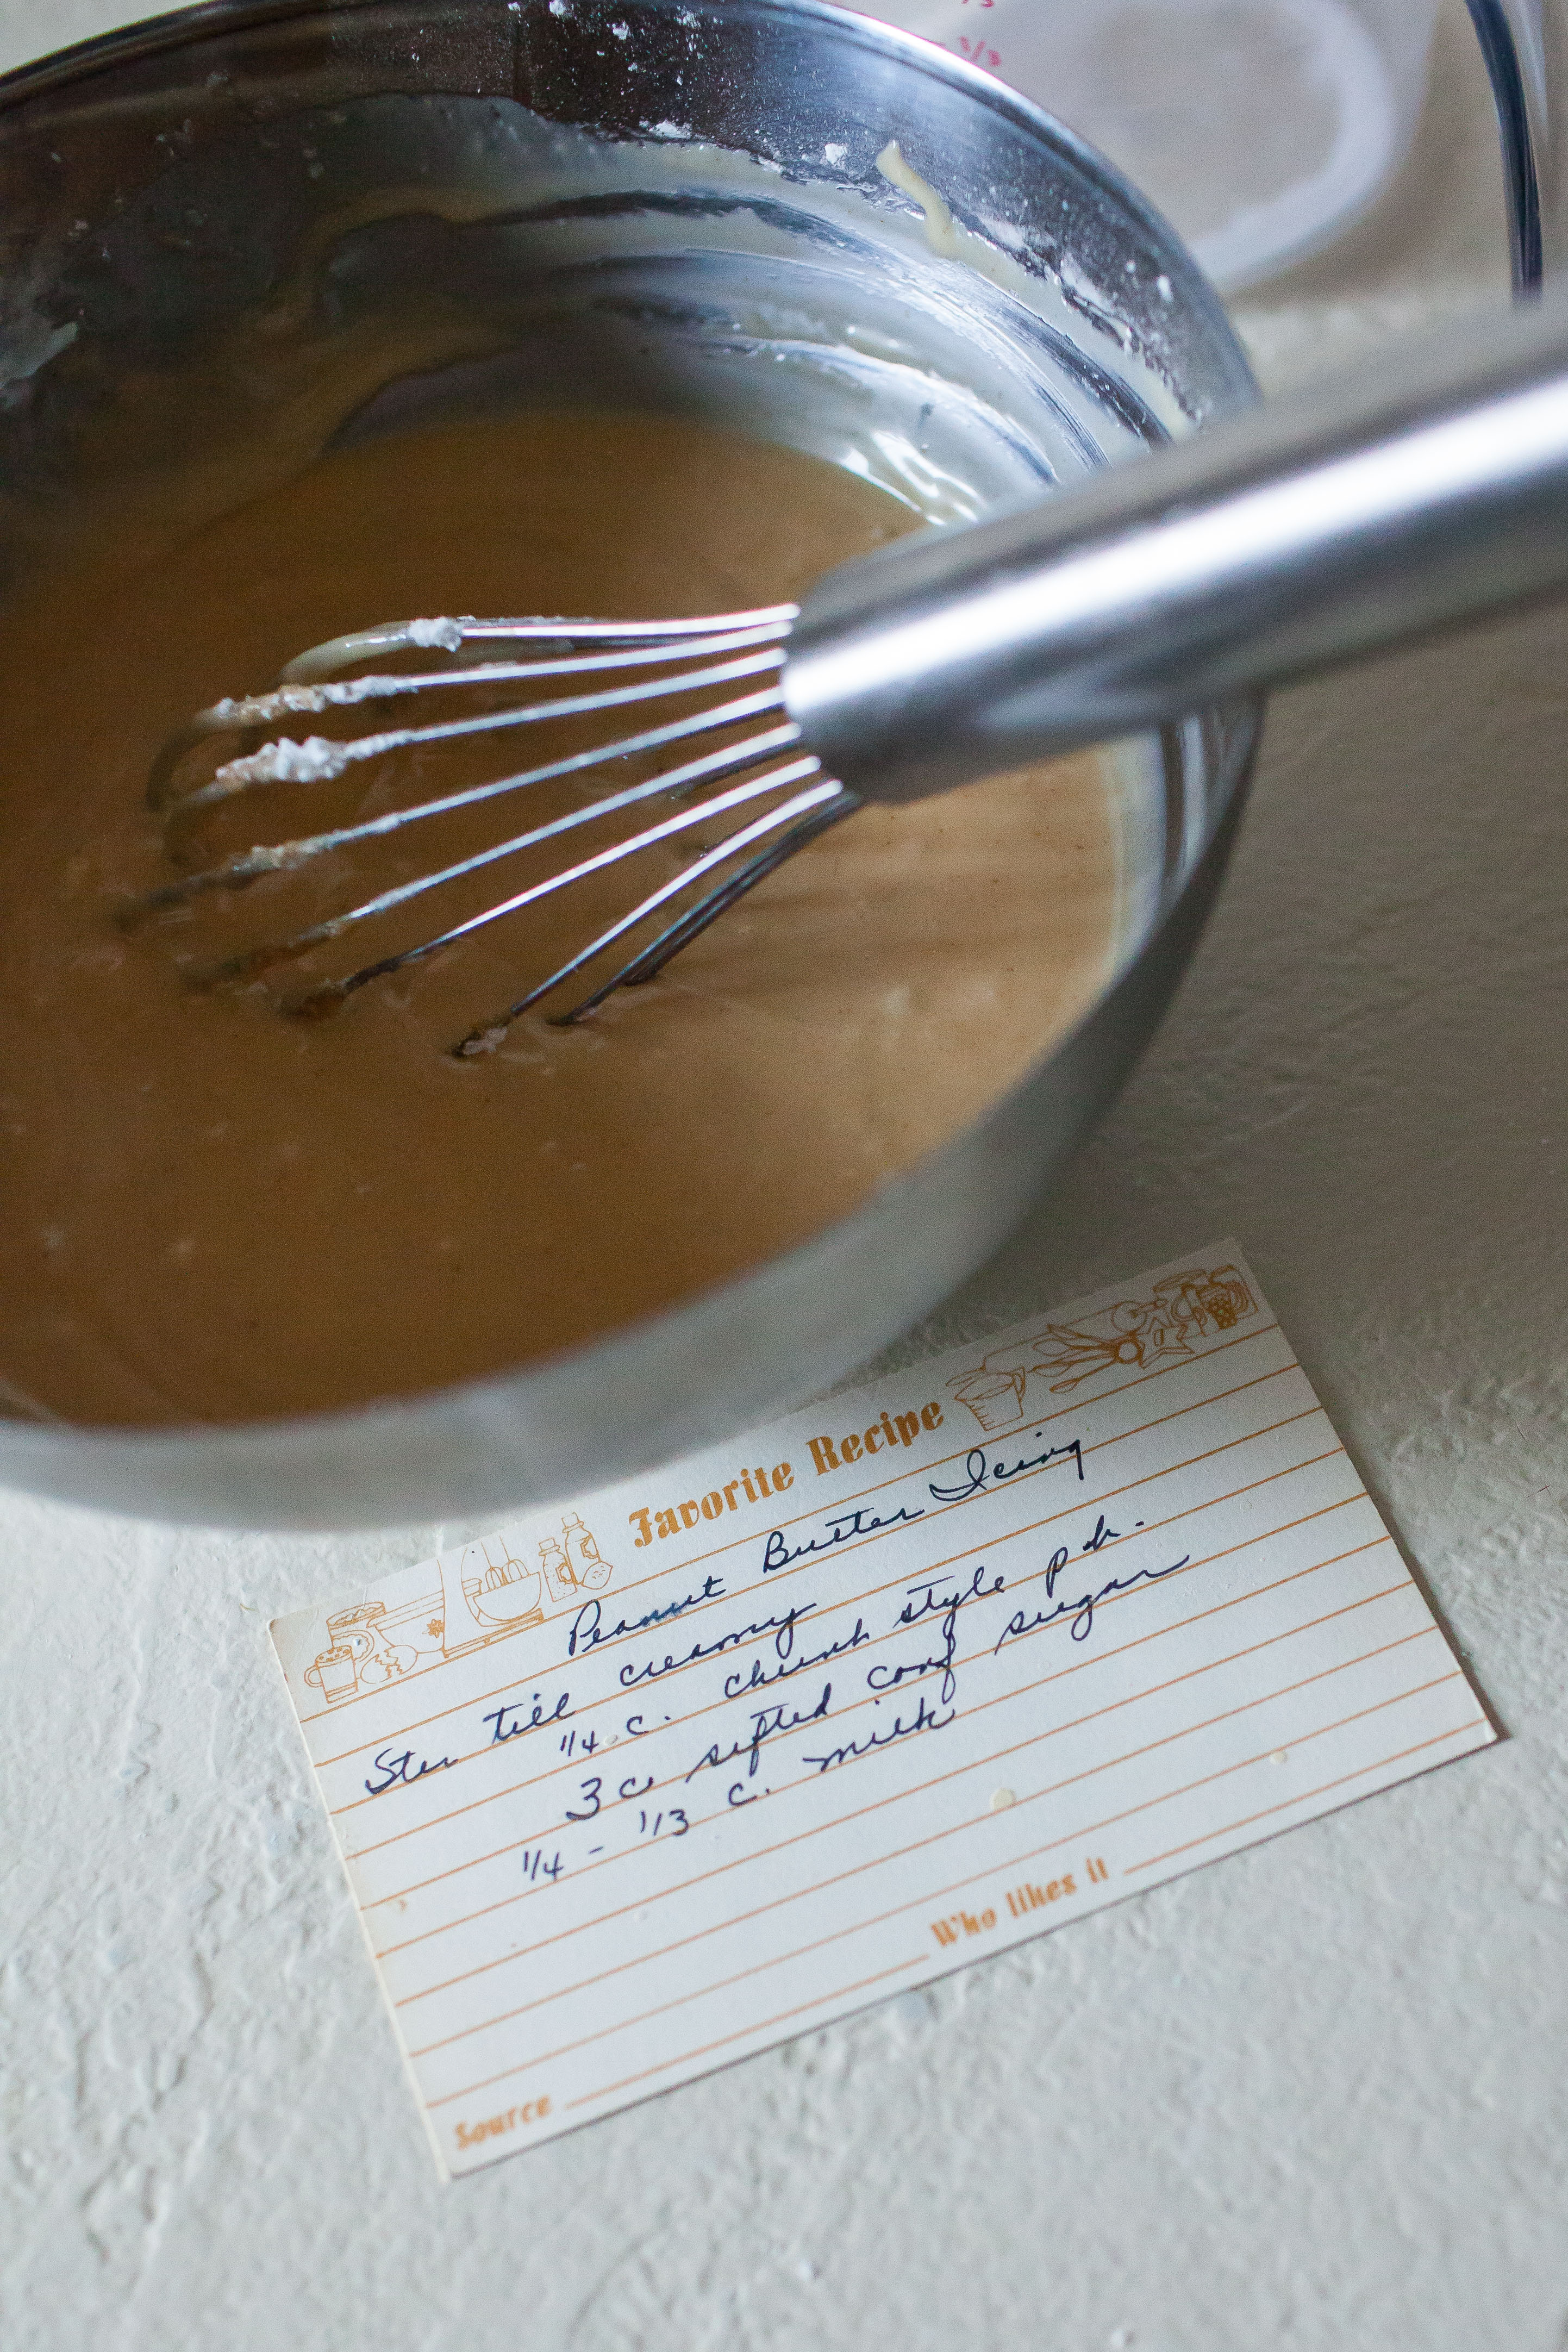 1/3
Favorite Recipe
Peanut Butter Icing
Stir till creamy
1/4 c. chunk style p.b.
3 c. sifted conf sugar
1/4 - 1/3 c. milk
Who likes it
Source